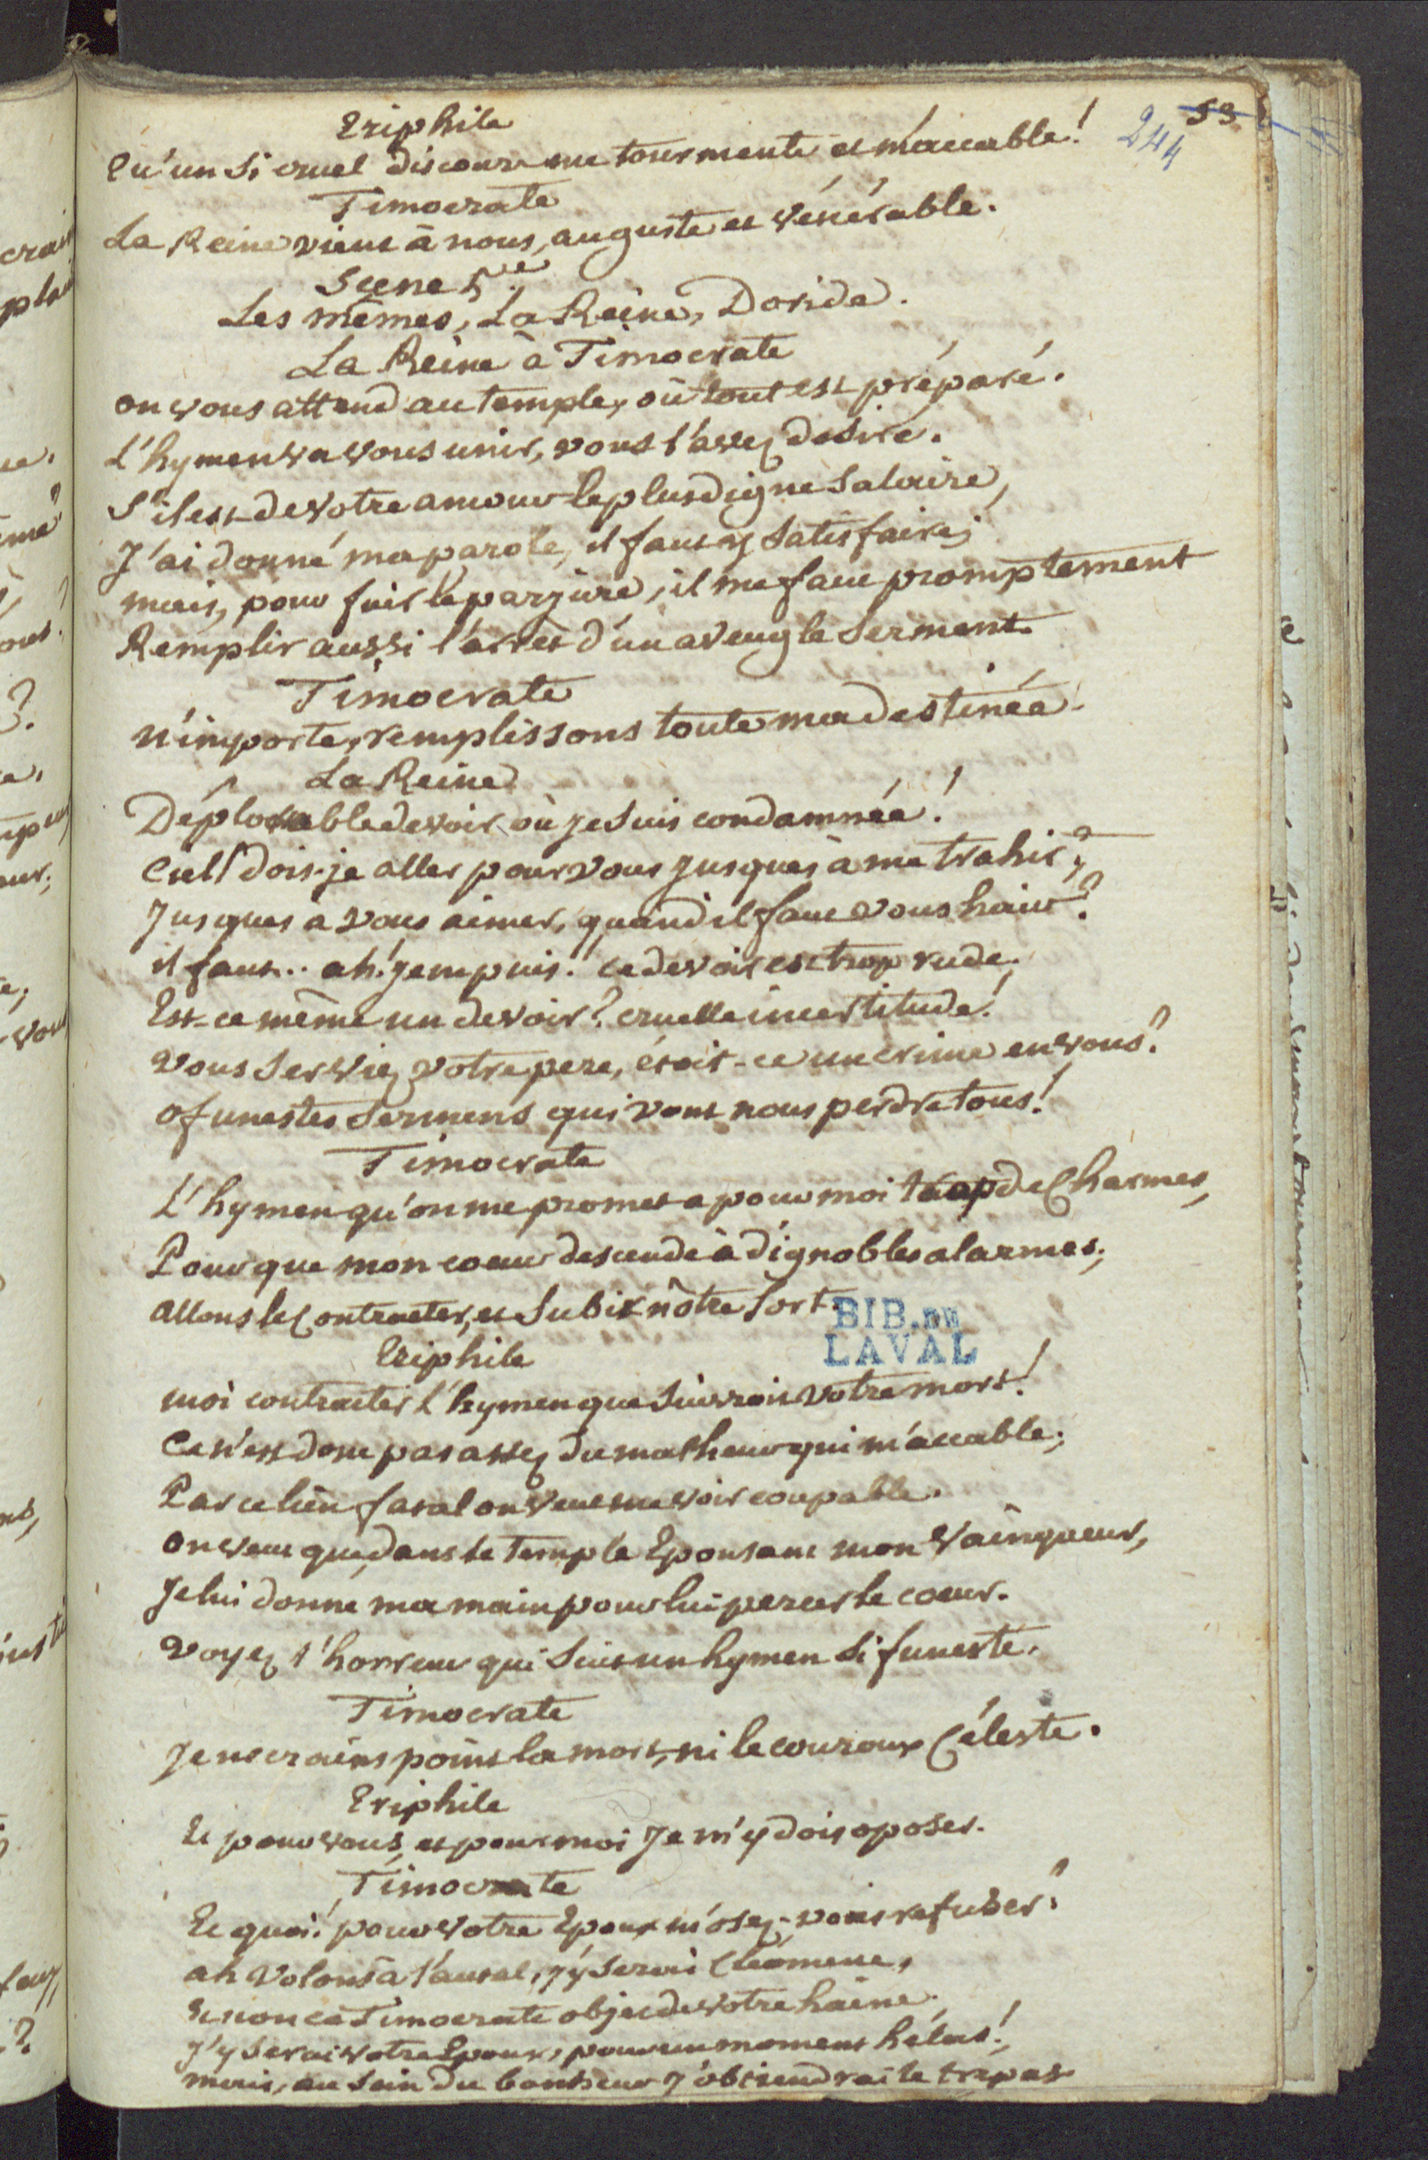 53
244
Eriphile
Qu'un si cruel discours me tourmente et m'accable!
Timocrate
La Reine vient à nous, auguste et vénérable.
Scene 5.e
Les mêmes, La Reine, Doride.
La Reine à Timocrate
on vous attend au temple, où tout est préparé.
L'hymen va vous unir, vous l'avez desiré.
S'il est de votre amour le plus digne salaire,
J'ai donné ma parole, il faut y satisfaire;
mais, pour fuir le parjure, il me faut promptement
Remplir aussi l'arrêt d'un aveugle serment.
Timocrate
n'importe, remplissons toute ma destinée.
La Reine
Déplorable devoir où je suis condamnée!
Ciel! dois-je aller pour vous jusques à me trahir?
Jusques a vous aimer, quand il faut vous haïr?
il faut.. ah! je ne puis! ce devoir est trop rude.
Est-ce même un devoir? cruelle incertitude!
vous serviez votre pere, étoit-ce un crime en vous?
o funestes sermens qui vont nous perdre tous!
Timocrate
L'hymen qu'on me promet a pour moi trop de Charmes,
Pour que mon coeur descende à d'ignobles alarmes;
allons le Contracter, et subir nôtre sort.
BIB. DE
LAVAL
Eriphile
moi contracter l'hymen que suivroit votre mort!
Ce n'est donc pas assez du malheur qui m'accable;
Par ce lien fatal on veut me voir coupable.
on veut que, dans le temple Epousant mon Vainqueur,
Je lui donne ma main pour lui percer le coeur.
voyez l'horreur qui suit un hymen si funeste.
Timocrate
Je ne crains point la mort, ni le couroux Céleste.
Eriphile
Et pour vous, et pour moi Je m'y dois oposer.
Timocrate
Et quoi! pour votre Epoux m'osez-vous refuser?
ah volons à l'autel, j'y serai Cléomene,
Et non ce Timocrate objet de votre haine.
J'y serai votre Epoux, pour un moment hélas!
mais, au sein du bonheur J'obtiendrai le trepas